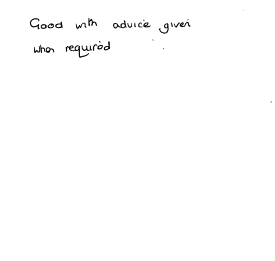 Good with advice given
when required.